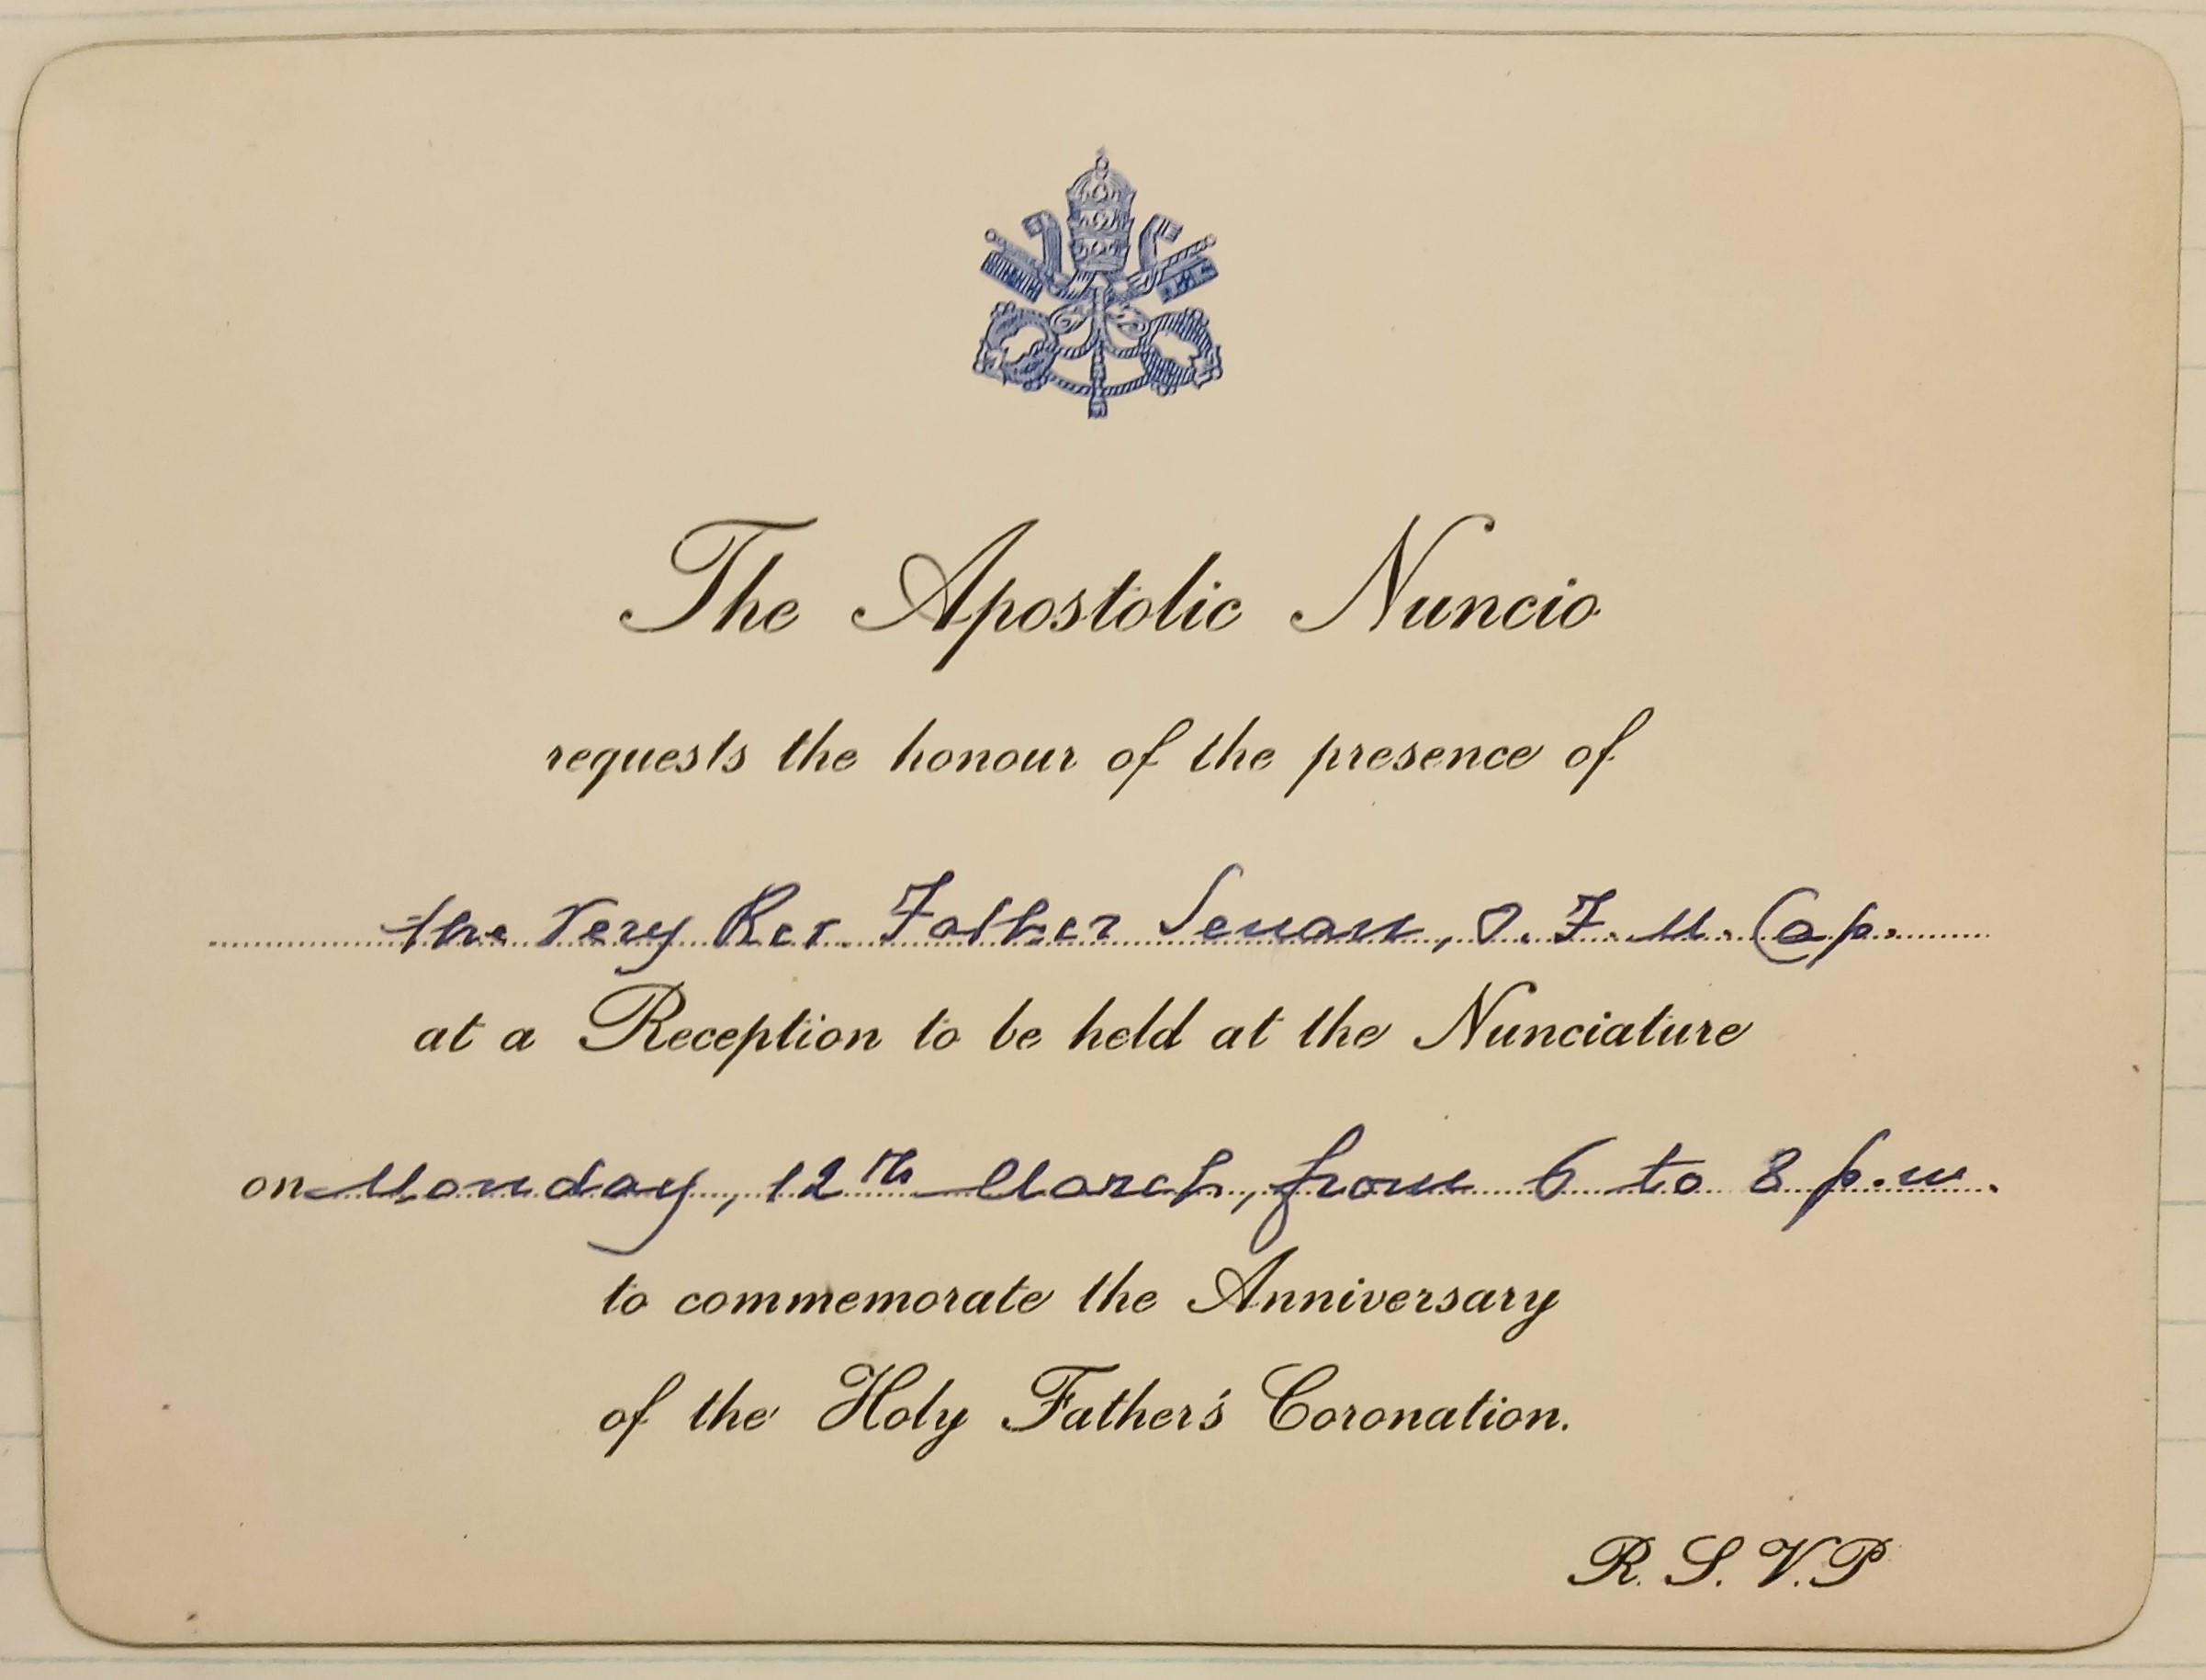 The Apostolic Nuncio
requests the honour of the presence of
the Very Rev. Father Senan, O.F.M. Cap.
at a Reception to be held at the Nunciature
on Monday, 12th March, from 6 to 8 p.m.
to commemorate the Anniversary
of the Holy Father's Coronation.
R.S.V.P